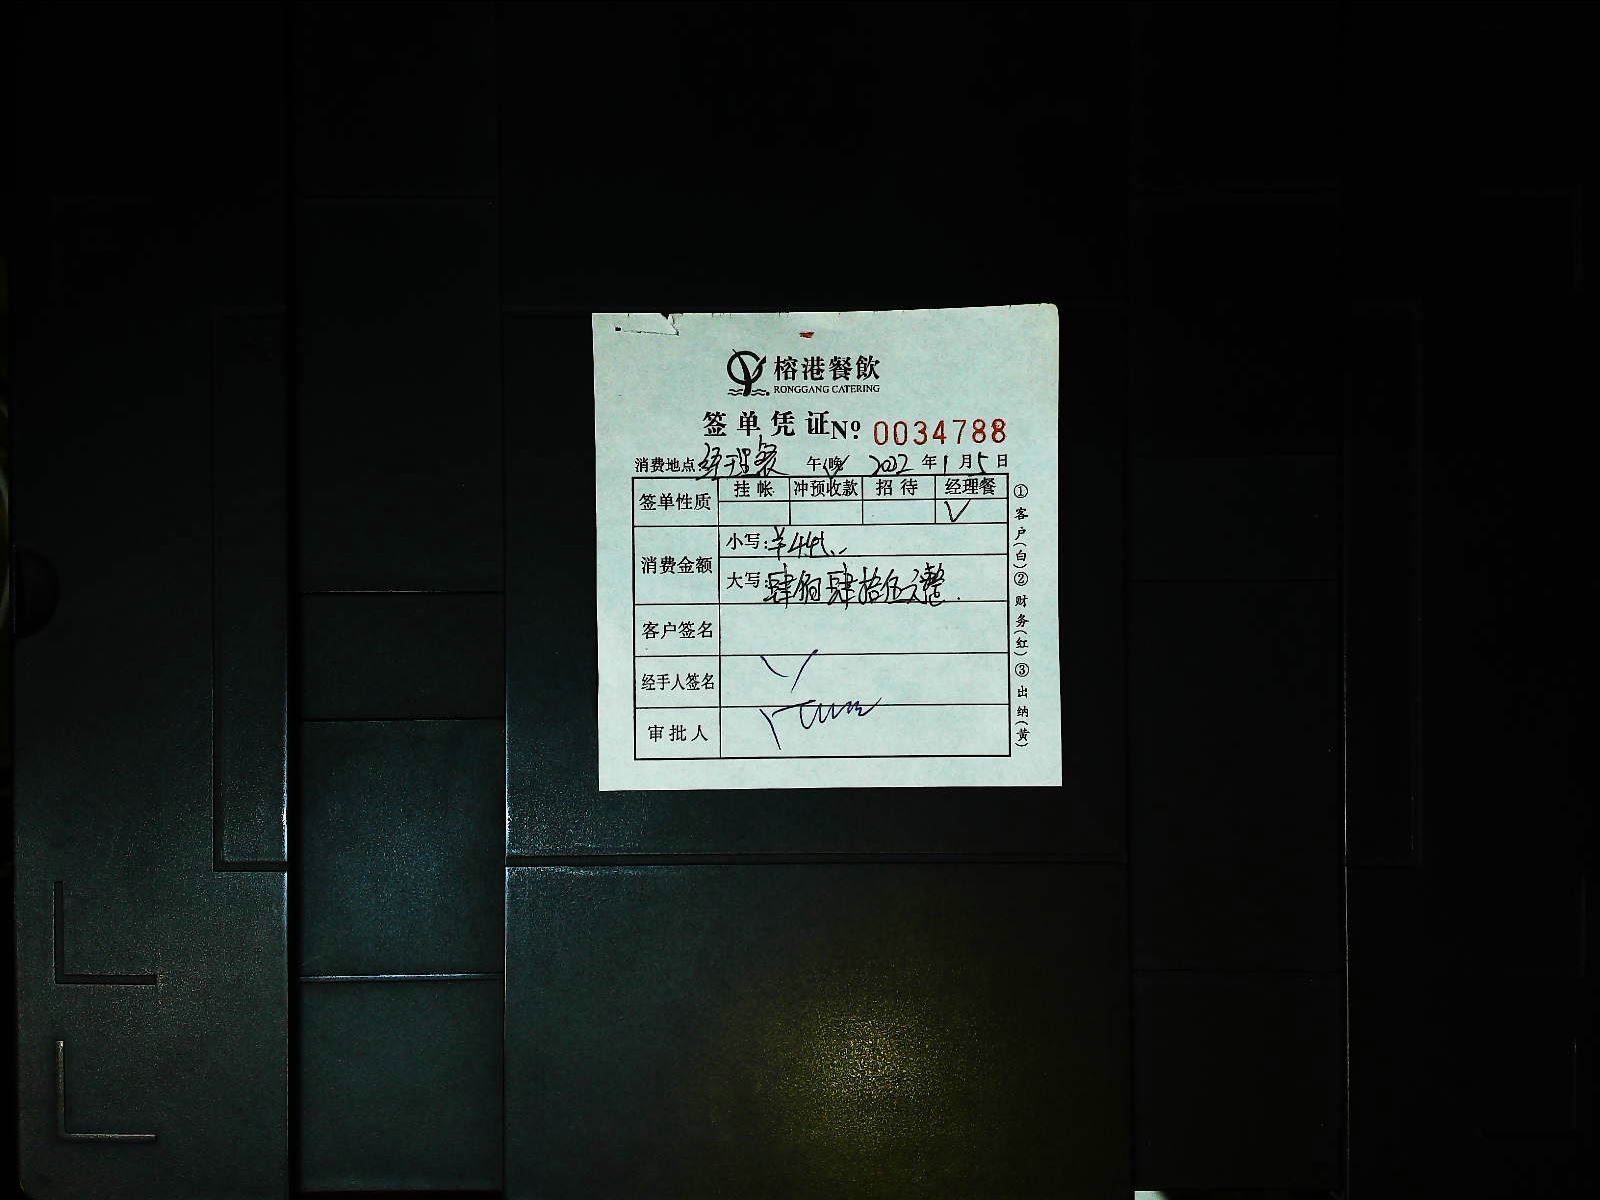 榕港餐飲
RONGGANG CATERING
签单凭证 Nº 0034788
消费地点:经理餐 午(晚) 2022年1月5日
签单性质 挂帐 冲预收款 招待 经理餐
√
消费金额 小写:¥445.-
大写:肆佰肆拾伍元整.
客户签名
经手人签名
审批人
①客户(白)②财务(红)③出纳(黄)